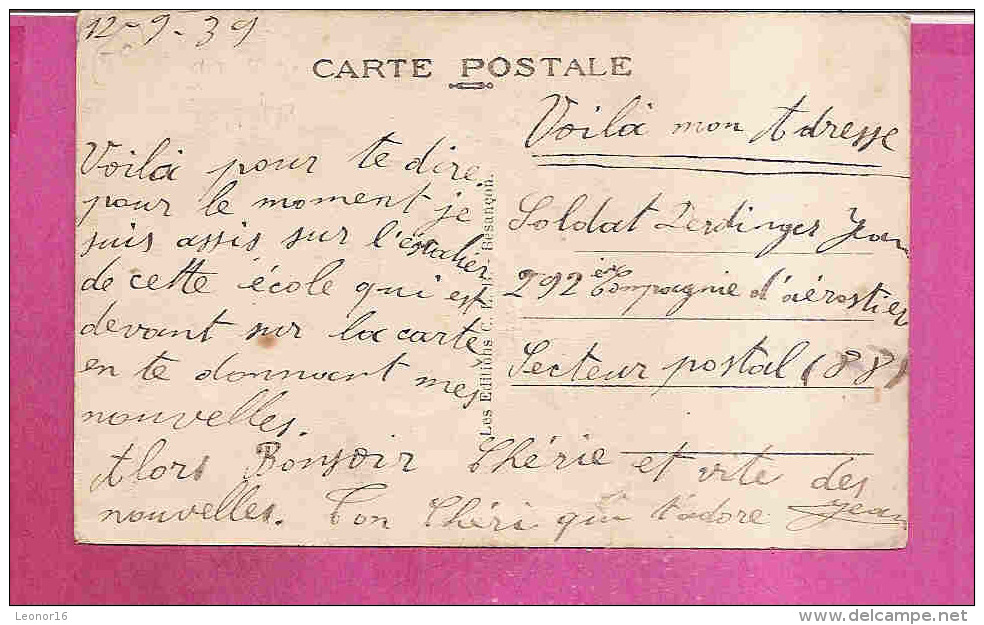 12-9-39
CARTE POSTALE
Voilà pour te dire.
pour le moment je
suis assis sur l'éscalier
de cette école qui est
devant sur la carte
en te donnant mes
nouvelles.
Alors Bonsoir Chérie et vite des
nouvelles. Ton Chéri qui t'adore Jean
Les Editions C. Besançon.
Voilà mon Adresse
Soldat Zerdinger Jean
292 Compagnie d'aérostier
Secteur postal (88)
Leonor16
www.delcampe.net